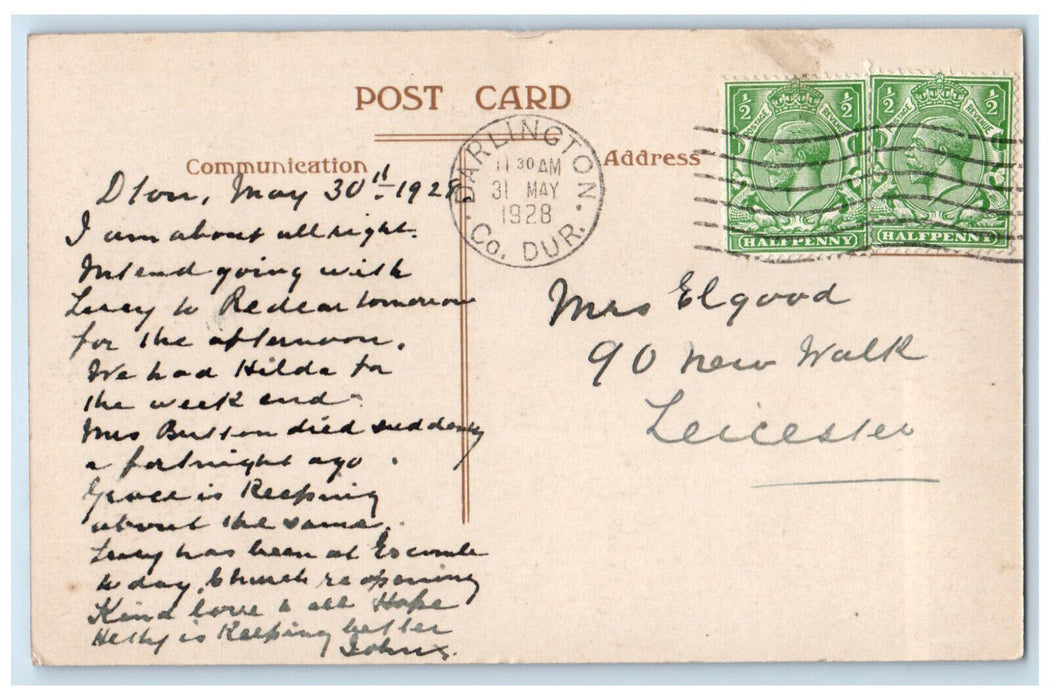 POST CARD
Communication
Dton, May 30th 1928
I am about all right.
Intend going with
Lucy to Redcar tomorrow
for the afternoon.
We had Hilda for
the week end.
Mrs Button died suddenly
a fortnight ago.
Grace is Keeping
about the same.
Lucy has been at Escomb
to day, Church re opening
Kind love to all Hope
Hetty is Keeping better
John
DARLINGTON
11 30 AM
31 MAY
1928
Co. DUR.
Address
½ ½
POSTAGE REVENUE
HALFPENNY
½ ½
POSTAGE REVENUE
HALFPENNY
Mrs Elgood
90 New Walk
Leicester